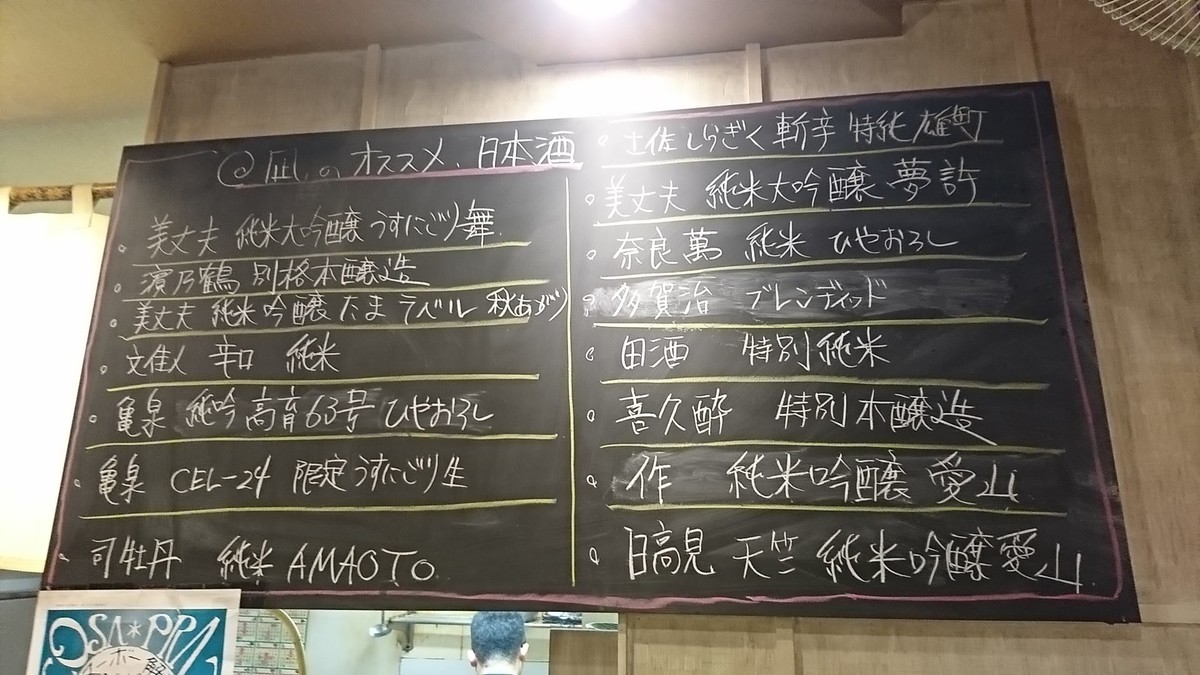 @凪のオススメ、日本酒
美丈夫 純米大吟醸 うすにごり 舞
濱乃鶴 別格本醸造
美丈夫 純米吟醸 たまラベル 秋あがり
文佳人 辛口 純米
亀泉 純吟 高育63号 ひやおろし
亀泉 CEL-24 限定うすにごり生
司牡丹 純米 AMAOTO
土佐しらぎく 斬辛 特純 雄町
美丈夫 純米大吟醸 夢許
奈良萬 純米 ひやおろし
多賀治 ブレンディッド
田酒 特別純米
喜久酔 特別本醸造
作 純米吟醸 愛山
日高見 天竺 純米吟醸愛山
OSA*PRA